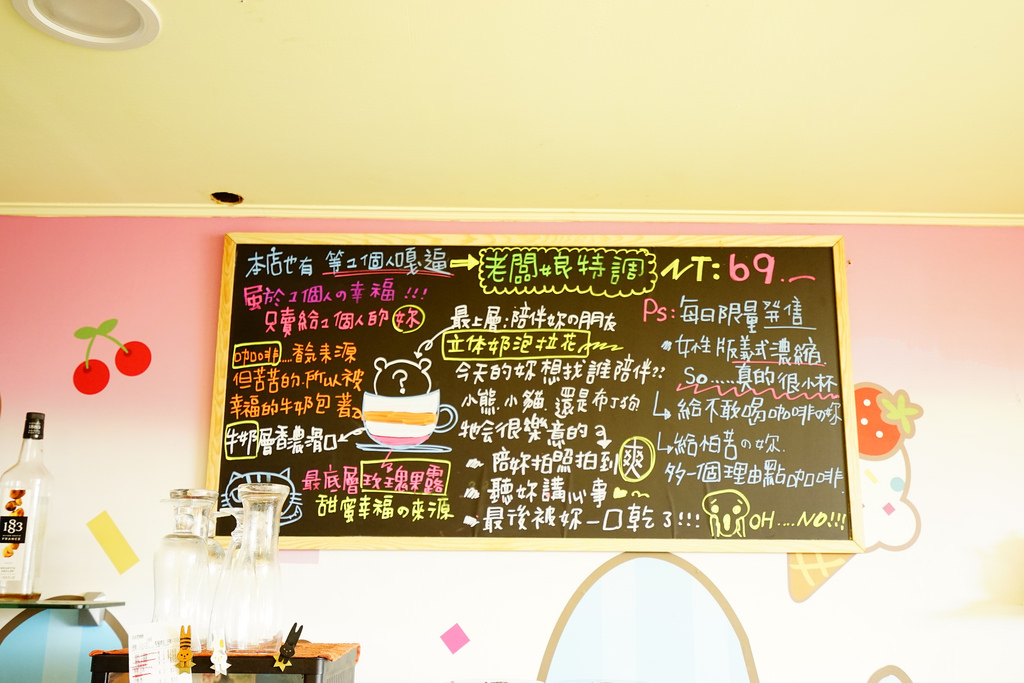 本店也有 等1個人嘎逼
老闆娘特調 NT:69.
屬於1個人の幸福!!!
只賣給1個人的 妳
咖啡....香氣來源
但苦苦的.所以被
幸福的牛奶包著
牛奶層香濃滑口
最底層玫瑰果露
甜蜜幸福の來源
最上層:陪伴妳の朋友
立体奶泡拉花
?
今天的妳想找誰陪伴??
小熊.小貓.還是布丁狗
牠会很樂意的
陪妳拍照拍到爽
聽妳講心事
最後被妳一口乾了!!!
Ps:每日限量発售
女性版義式濃縮.
So.....真的很小杯
給不敢喝咖啡の妳
給怕苦の妳.
多一個理由點咖啡.
OH....NO!!!
183
FRANCE